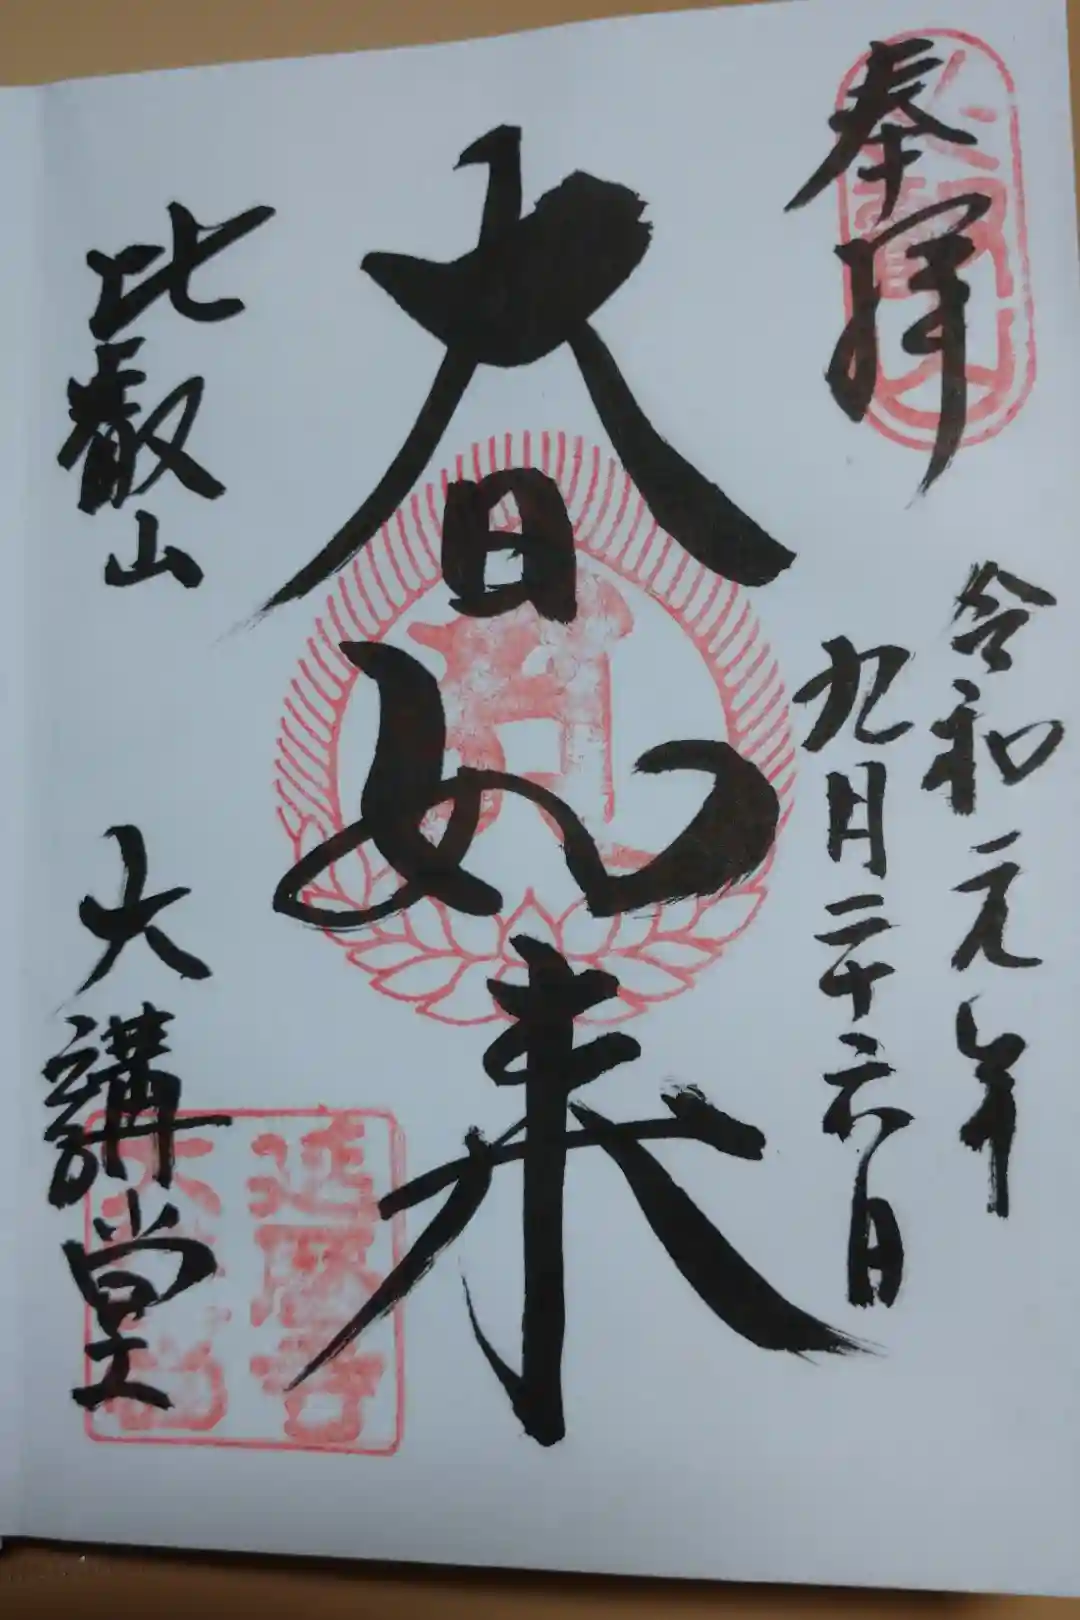 奉拝
令和元年
九月二十六日
大日如来
比叡山
大講堂
延暦寺